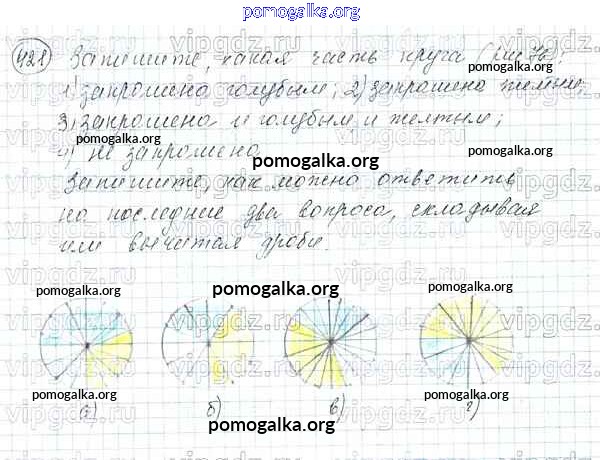 pomogalka.org
421 Запишите, какая часть круга (рис. 76):
1) закрашена голубым; 2) закрашена желтым;
3) закрашена и голубым и желтым;
4) не закрашено
pomogalka.org
Запишите, как можно ответить
на последние два вопроса, складывая
или вычитая дроби.
pomogalka.org
pomogalka.org pomogalka.org pomogalka.org
pomogalka.org pomogalka.org
а) б) в) г)
pomogalka.org